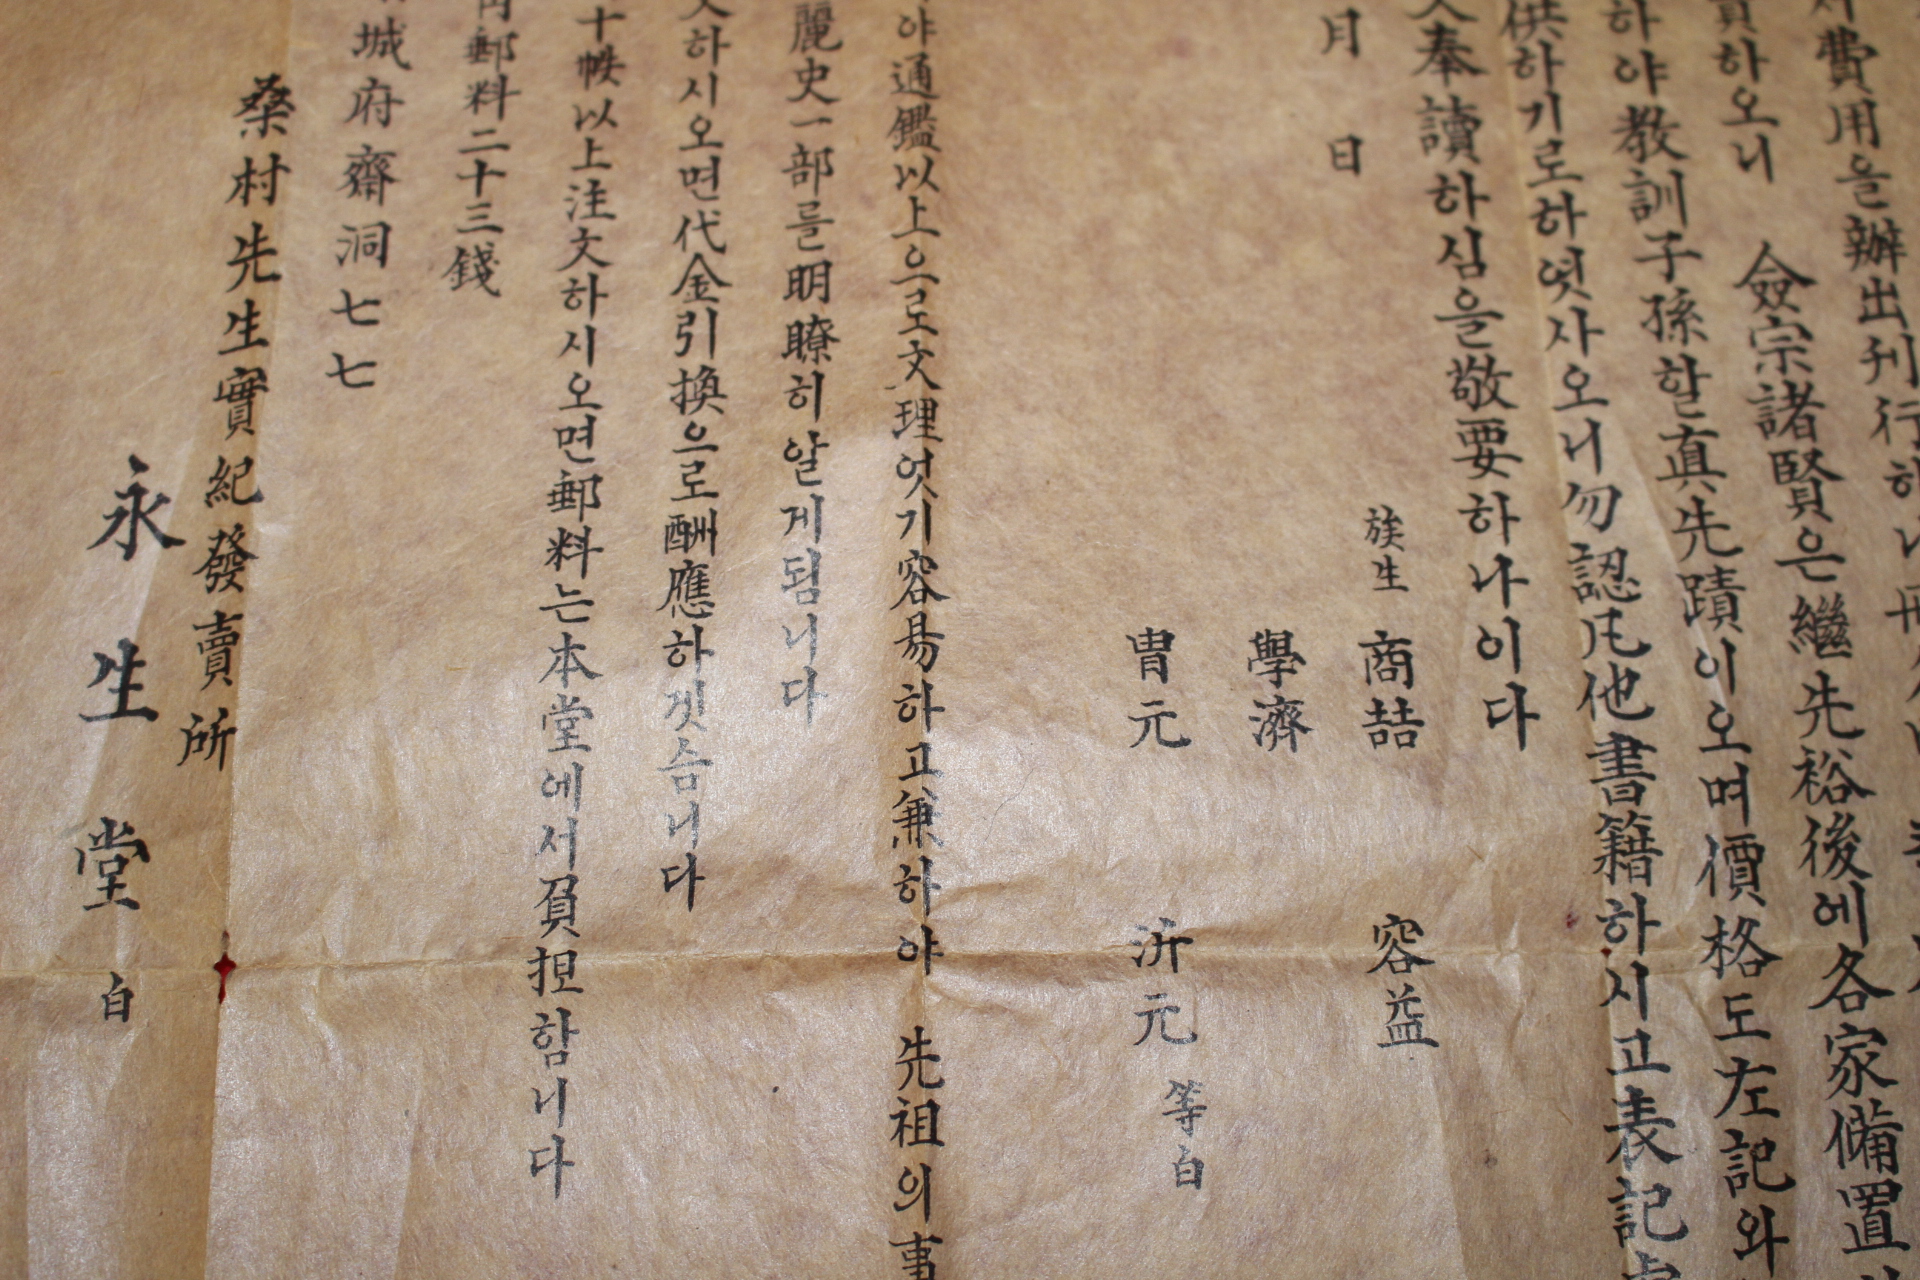 費用을辦出刊行하
하오니 僉宗諸賢은繼先裕後에各家備置
하야教訓子孫할真先蹟이오며價格도左記와
供하기로하엿사오니勿認凡他書籍하시고表記
奉讀하심을敬要하나이다
月 日
族生 商喆 容益
學濟
冑元 沂元 等白
야通鑑以上으로文理엇기容易하고兼하야 先祖의事
麗史一部를明瞭히알게됨니다
하시오면代金引換으로酬應하겟슴니다
十帙以上注文하시오면郵料는本堂에서負担함니다
郵料二十三錢
城府齋洞七七
桑村先生實紀發賣所
永生堂 白